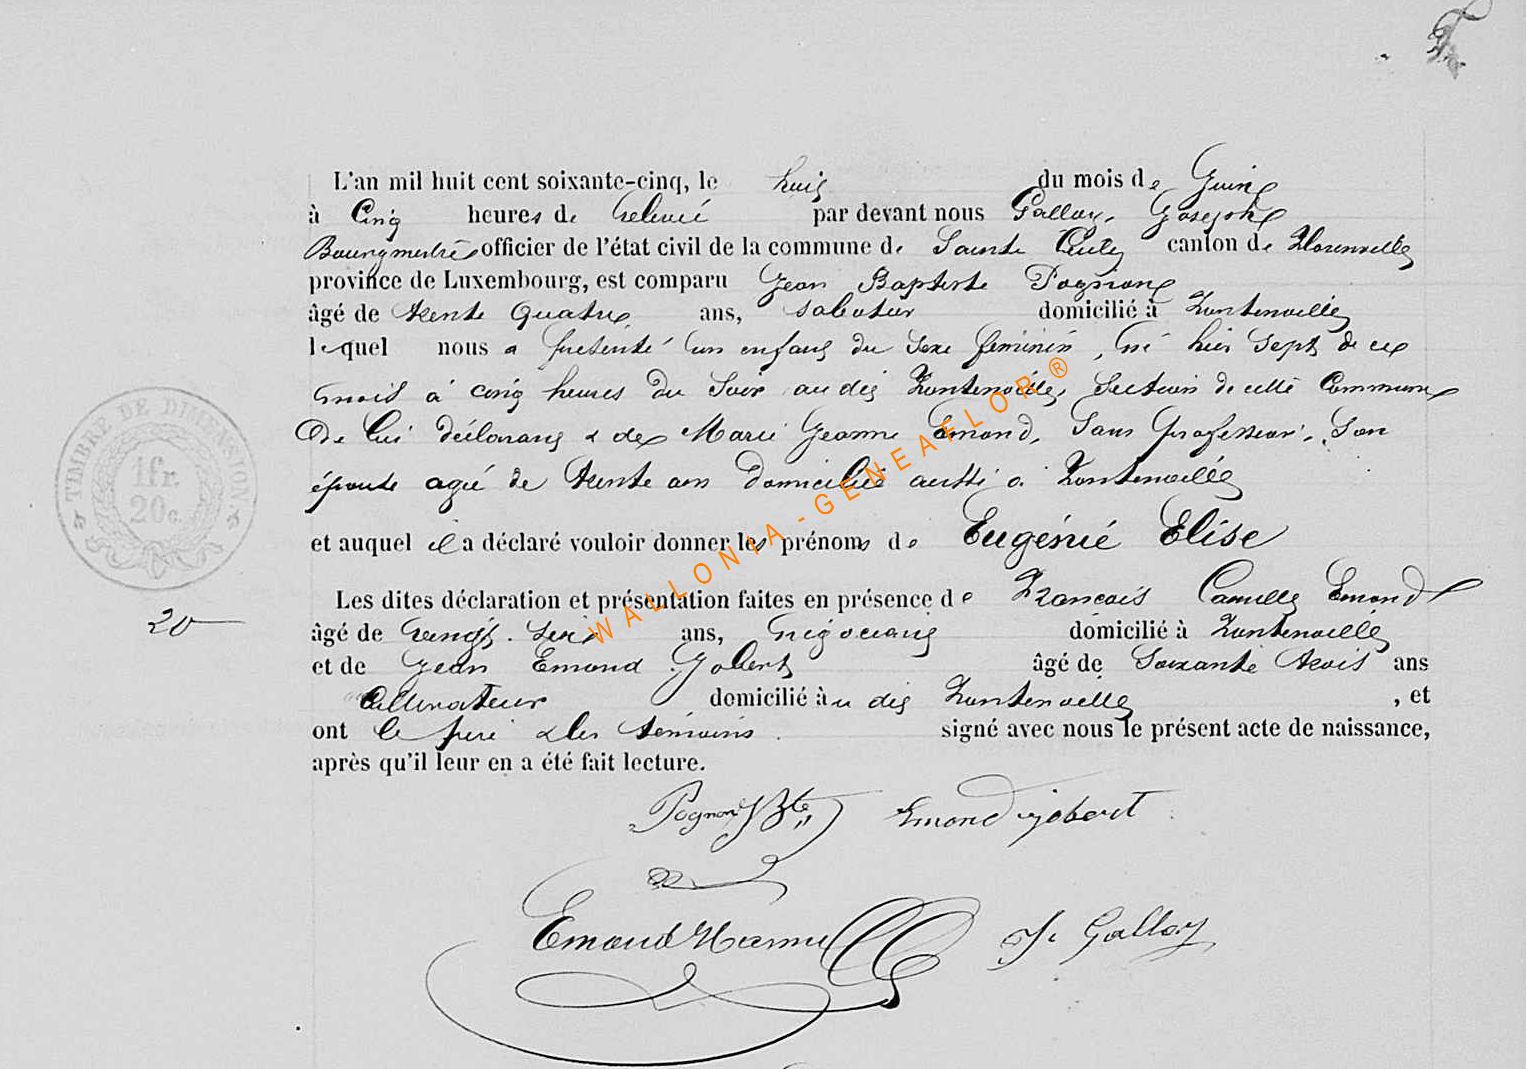 L'an mil huit cent soixante-cinq, le huit du mois de Juin
à Cinq heures de relevée par devant nous Galloy, Joseph
Bourgmestre officier de l'état civil de la commune de Sainte Cécile canton de Florenville
province de Luxembourg, est comparu Jean Baptiste Pognon
âgé de trente quatre ans, sabotier domicilié à Fontenoille
lequel nous a présenté un enfant du sexe féminin, né hier sept de ce
mois à cinq heures du soir au dit Fontenoille, Section de cette Commune
de lui déclarant & de Marie Jeanne Emond, Sans profession, son
épouse agée de trente ans domiciliée aussi à Fontenoille
et auquel il a déclaré vouloir donner les prénoms de Eugénie Elise
Les dites déclaration et présentation faites en présence de François Camille Emond
âgé de vingt-six ans, négociant domicilié à Fontenoille
et de Jean Emond Jobert âgé de Soixante trois ans
Cultivateur domicilié au dit Fontenoille, et
ont le père & les témoins signé avec nous le présent acte de naissance,
après qu'il leur en a été fait lecture.
TIMBRE DE DIMENSION
1 fr.
20 c.
20
Pognon J Bte Emond jobert
Emond J. Galloy
WALLONIA - GENEAFLOR ®